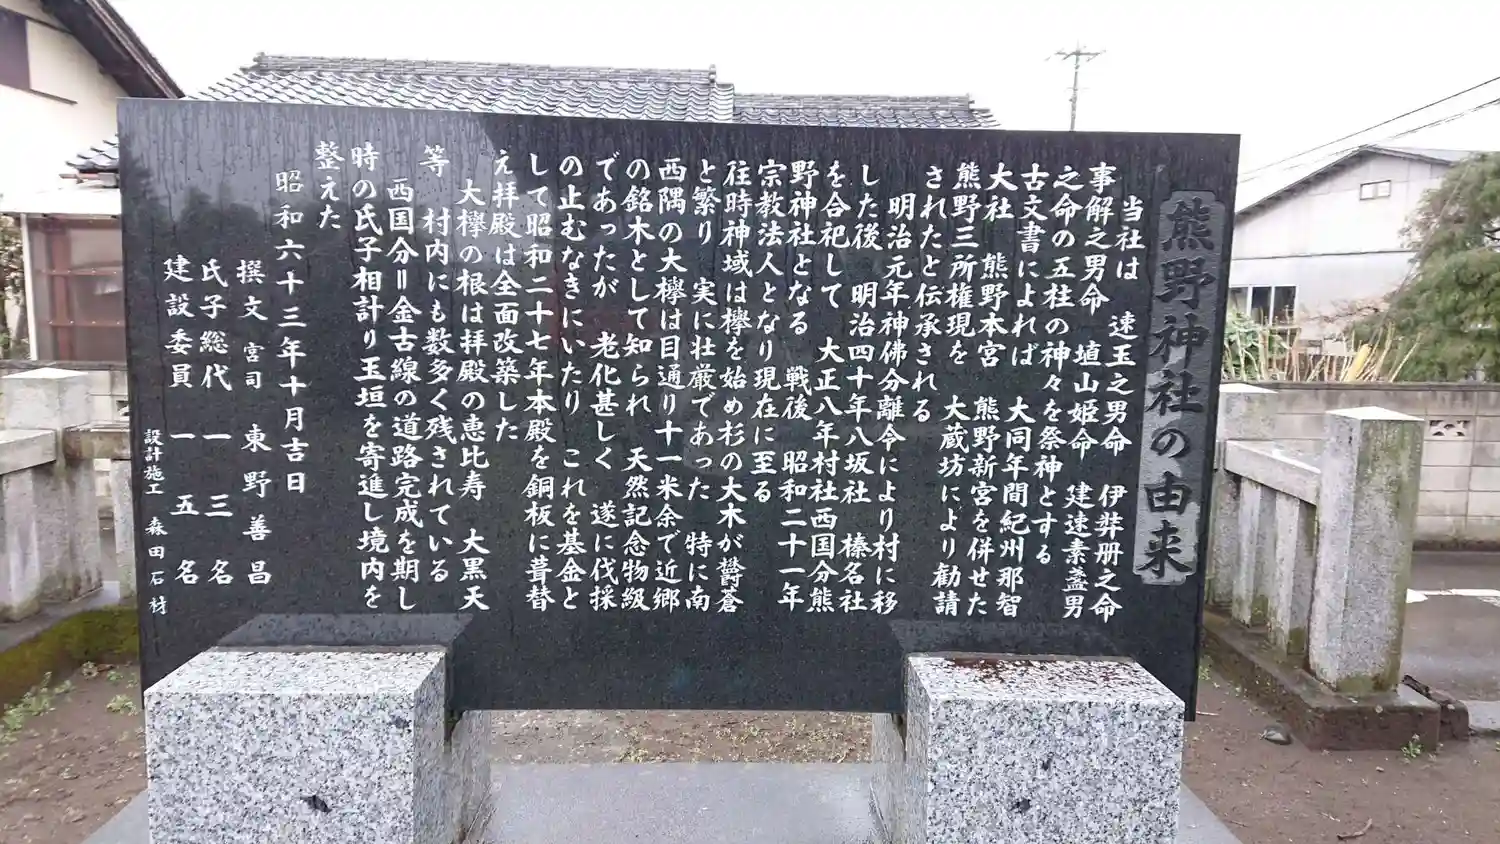 熊野神社の由来
当社は 速玉之男命 伊弉册之命
事解之男命 埴山姫命 建速素盞男
之命の五柱の神々を祭神とする
古文書によれば 大同年間紀州那智
大社 熊野本宮 熊野新宮を併せた
熊野三所権現を 大蔵坊により勧請
されたと伝承される
明治元年神佛分離令により村に移
した後 明治四十年八坂社 榛名社
を合祀して 大正八年村社西国分熊
野神社となる 戦後 昭和二十一年
宗教法人となり現在に至る
往時神域は欅を始め杉の大木が欝蒼
と繁り 実に壮厳であった 特に南
西隅の大欅は目通り十一米余で近郷
の銘木として知られ 天然記念物級
であったが 老化甚しく 遂に伐採
の止むなきにいたり これを基金と
して昭和二十七年本殿を銅板に葺替
え拝殿は全面改築した
大欅の根は拝殿の恵比寿 大黒天
等 村内にも数多く残されている
西国分＝金古線の道路完成を期し
時の氏子相計り玉垣を寄進し境内を
整えた
昭和六十三年十月吉日
撰文 宮司 東野善昌
氏子総代 一三名
建設委員 一五名
設計施工 森田石材